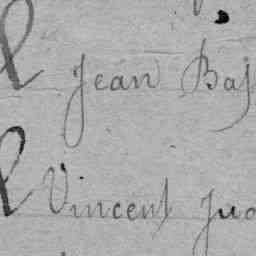 Jean Bap
Vincent Jua